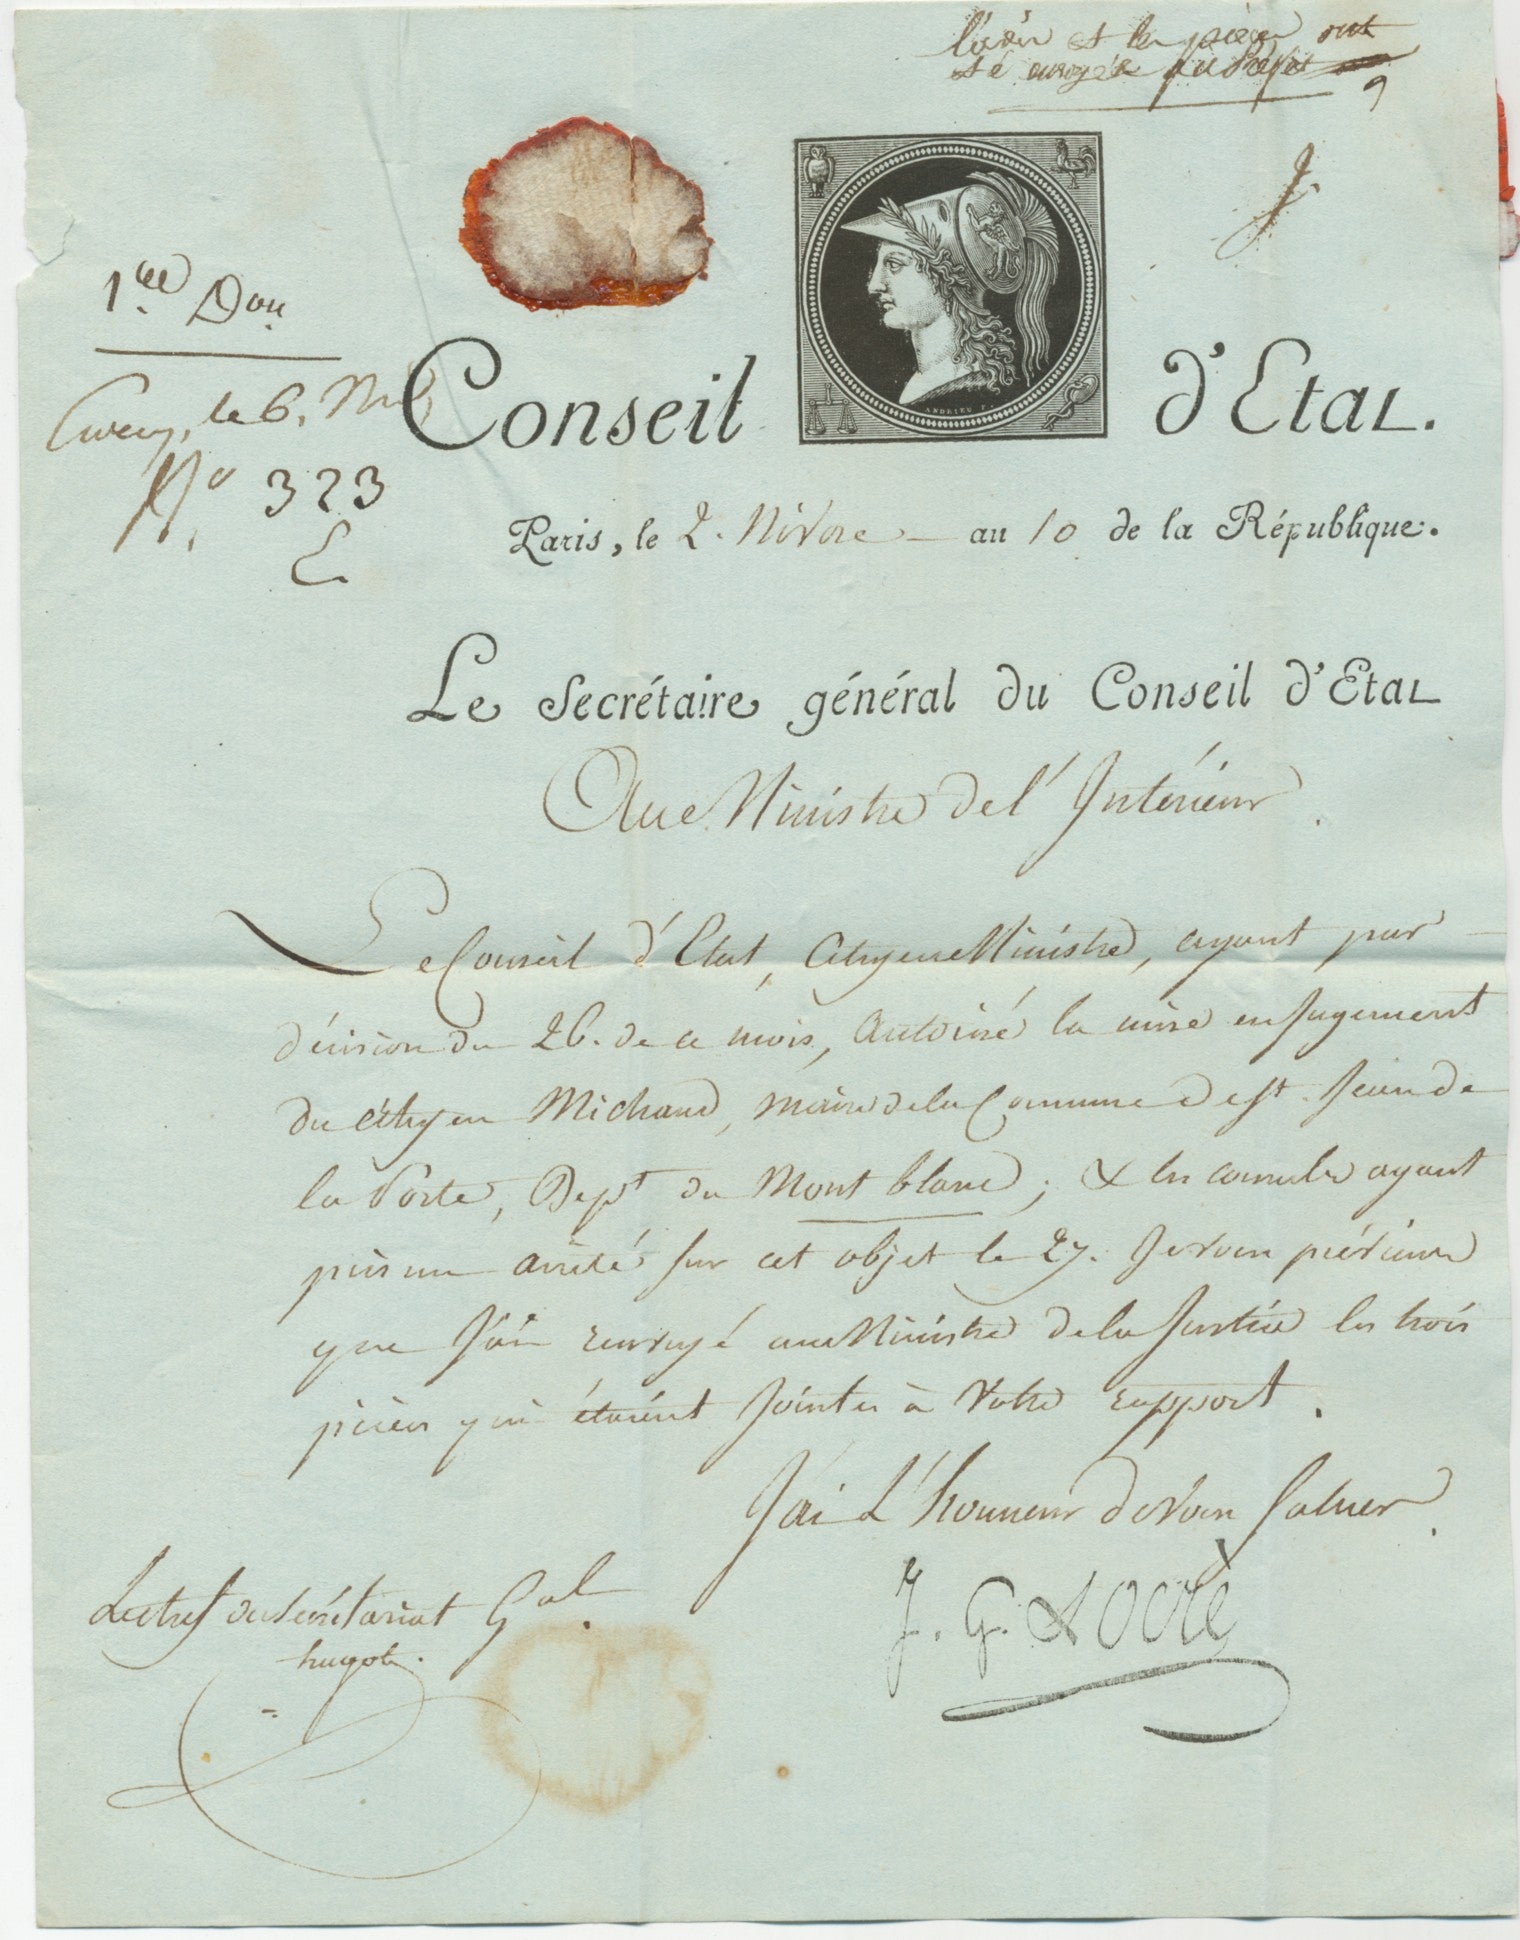 l'avis et les pièces ont
été envoyés au Préfet
1.ere Don.
Enreg. le 6. Niv.
N.º 323
Conseil d'Etat.
ANDRIEU F.
Paris, le 2. Nivose an 10 de la République.
Le Secrétaire général du Conseil d'Etat
Au Ministre de l'Intérieur.
Le Conseil d'Etat, Citoyen Ministre, ayant par
décision du 26. de ce mois, autorisé la mise en Jugement
du citoyen Michaud, maire de la Commune de St. Jean de
la Porte, Dept. du Mont blanc; & les consuls ayant
pris un arrêté sur cet objet le 27. Je vous préviens
que J'ai renvoyé au Ministre de la Justice les trois
pièces qui étaient Jointes à Votre rapport.
J'ai L'honneur de Vous Saluer.
J. G. Locré
Le chef du Secrétariat Gal.
hugot.